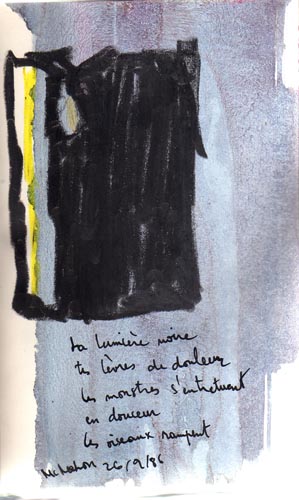 La lumière noire
tes lèvres de douleur
les monstres s'entretuent
en douceur
les oiseaux rampent
McMahon 26/9/86